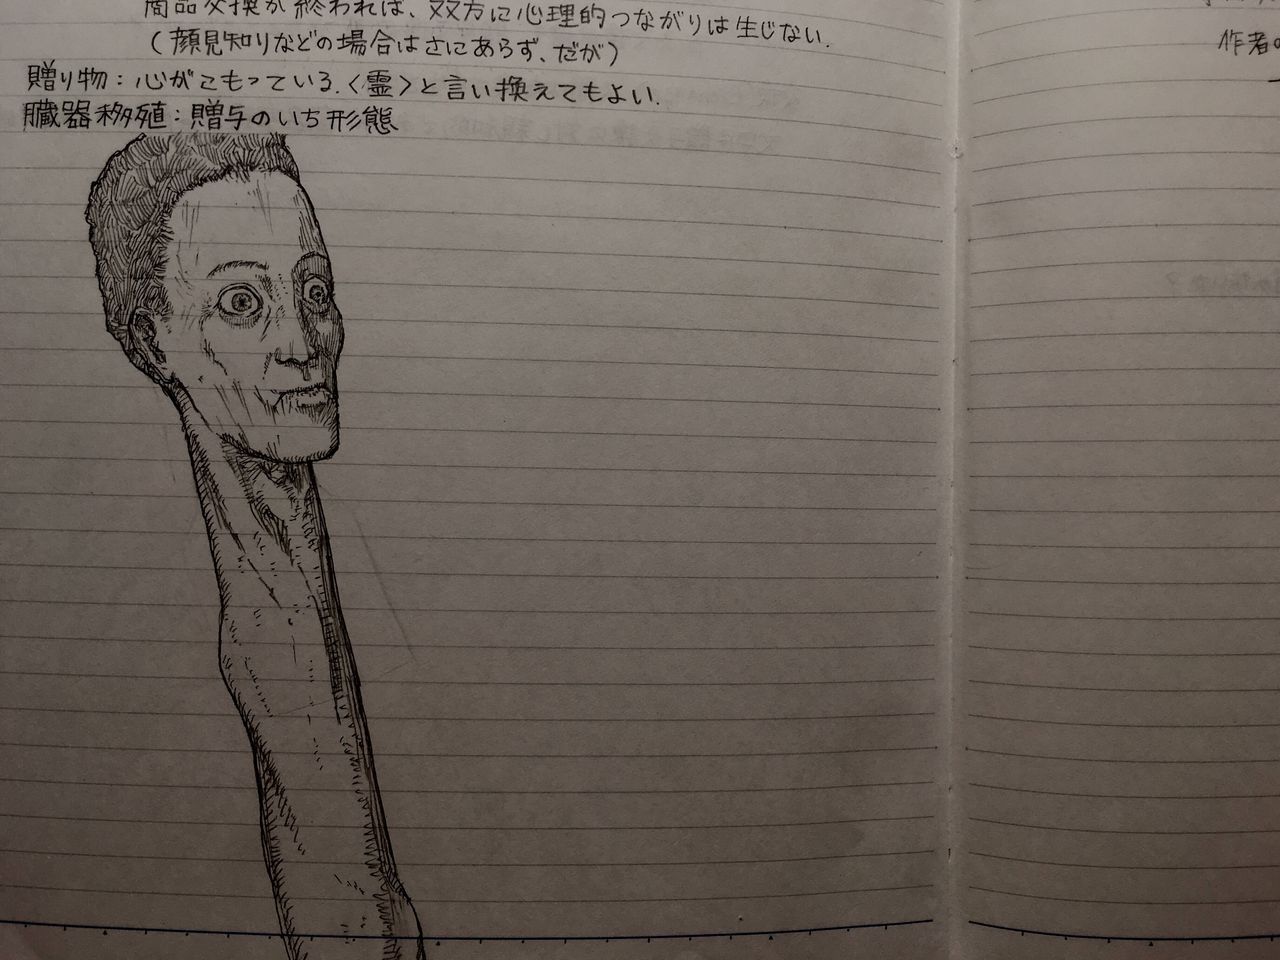 商品交換が終われば、双方に心理的つながりは生じない.
(顔見知りなどの場合はさにあらず、だが)
贈り物：心がこもっている.〈霊〉と言い換えてもよい.
臓器移殖：贈与のいち形態
作者の